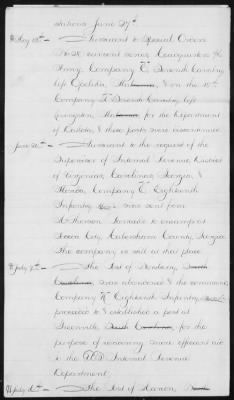 stations June 27th
May 18th — Pursuant to Special Orders
No. 28 current series, Headquarters of the
Army, Company "E" Seventh Cavalry
left Opelika, Alabama, & on the 18th
Company "F" Seventh Cavalry left
Livingston, Alabama for the Department
of Dakota, & these posts were discontinued.
June 20th — Pursuant to the request of the
Supervisor of Internal Revenue Districts
of Virginia, Carolinas, Georgia, &
Florida, Company "E" Eighteenth
Infantry was sent from
McPherson Barracks to encamp at
Social City, County, Georgia
The company is still at that place
July 7th — The Post of Newberry, South
Carolina, was abandoned & the command,
Company "K" Eighteenth Infantry,
proceeded to & established a post at
Greenville, South Carolina, for the
purpose of rendering more efficient aid
to the Internal Revenue
Department.
July 16th — The Post of Macon,